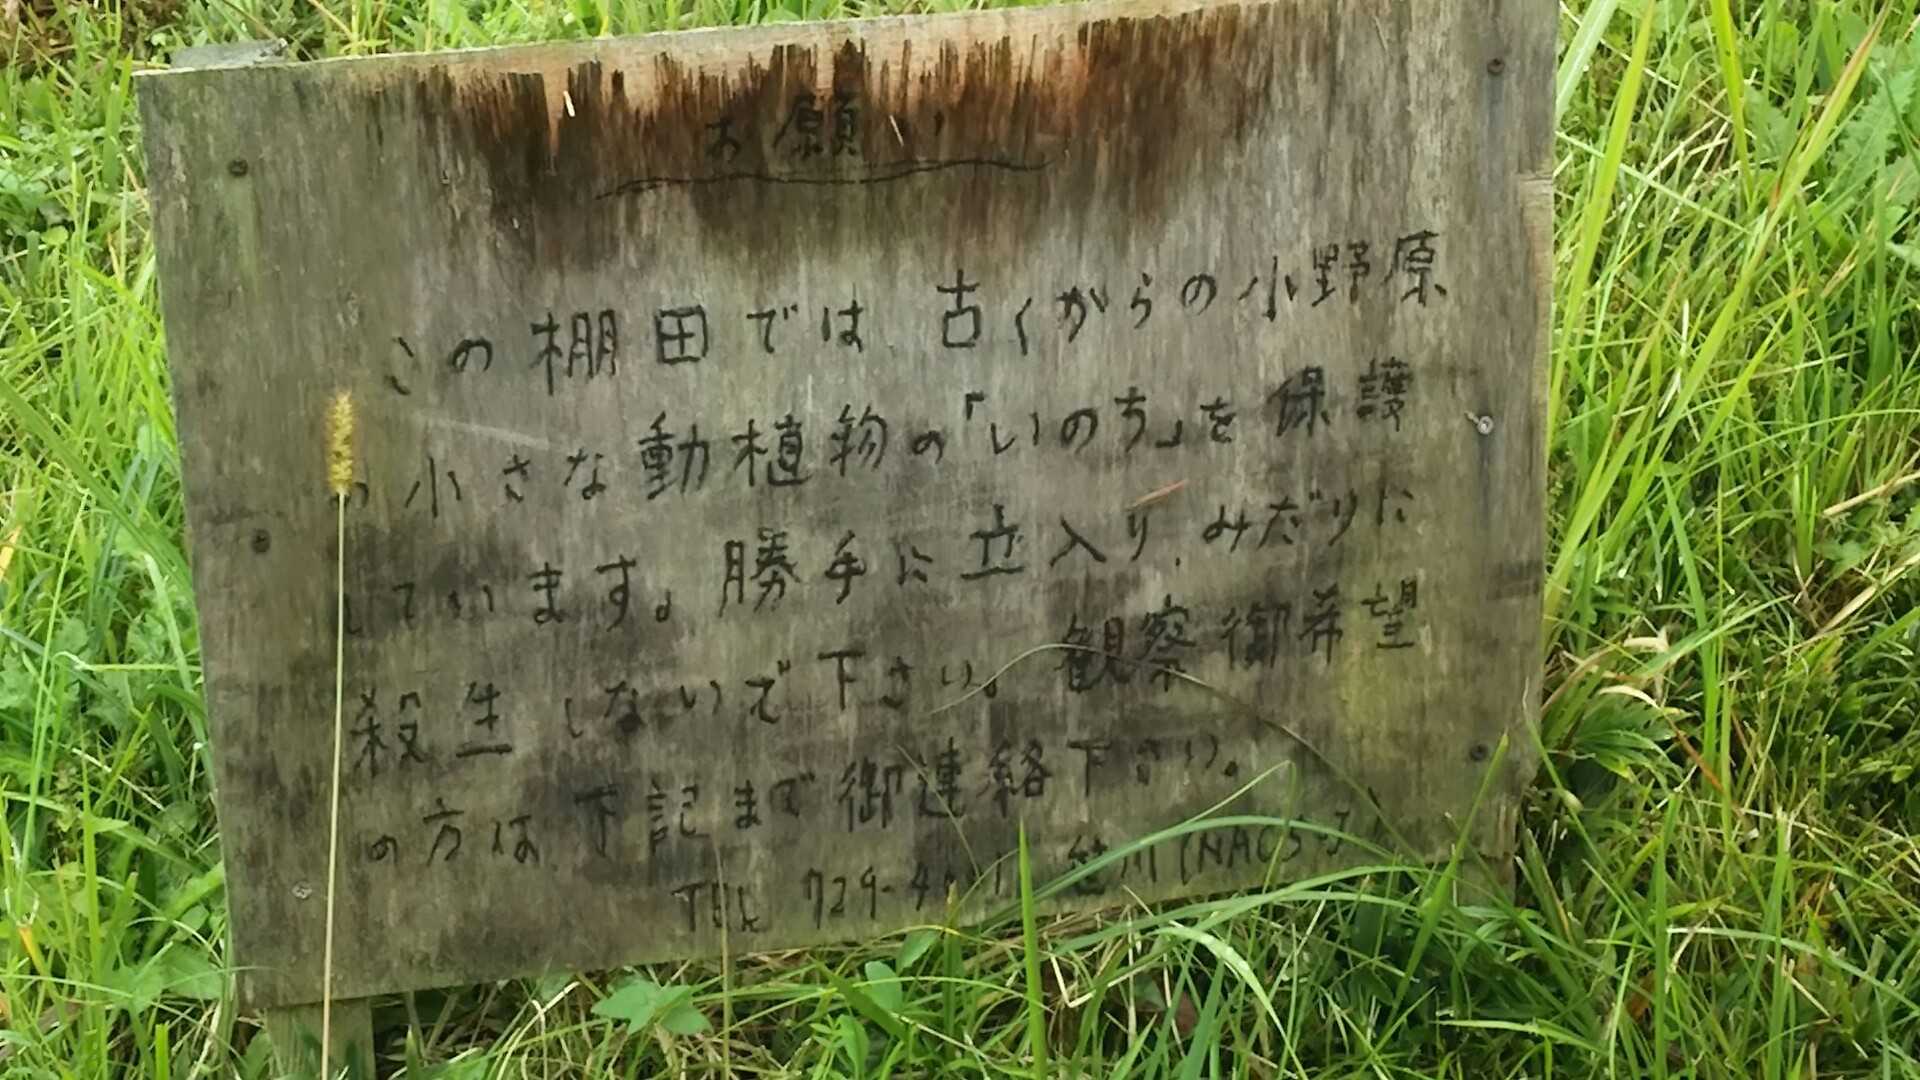 お願い
この棚田では 古くからの小野原
の小さな動植物の「いのち」を保護
しています。勝手に立入り、みだりに
殺生しないで下さい。観察御希望
の方は下記まで御連絡下さい。
TEL 729- 川(NACS-J)